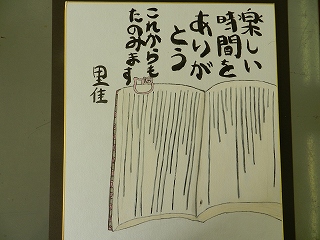 楽しい
時間を
ありが
とう
これからも
たのみます
里佳